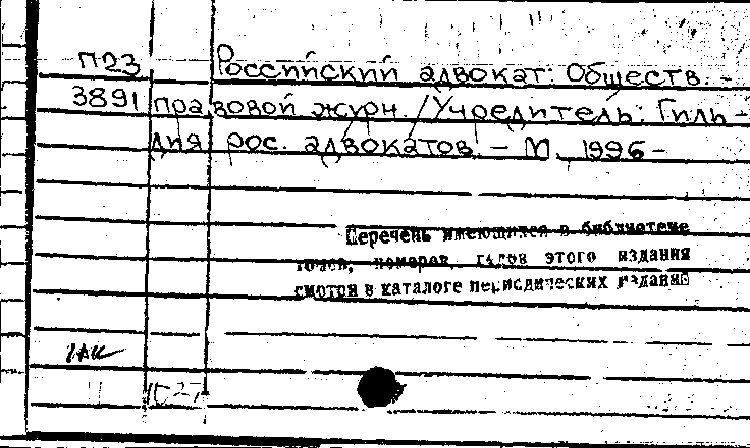 П23 Российский адвокат: Обществ. -
3891 правовой журн. / Учредитель: Гиль -
дия рос. адвокатов. - М., 1996 -
Перечень имеющихся в библиотеке
томов, номеров, годов этого издания
смотри в каталоге периодических изданий